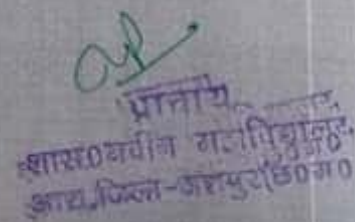 प्राचार्य
शास०नवीन महाविद्यालय,
जिला-जशपुर(छ०ग०